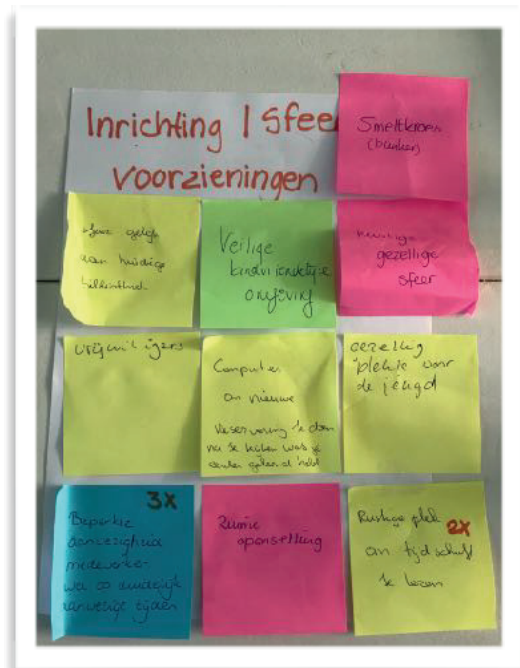 Inrichting | Sfeer
voorzieningen
Smeltkroes
sfeer gelijk
aan huidige
Veilige
kindvriendelijke
omgeving
gezellige
sfeer
vrijwilligers
Computer
om nieuwe
reservering te doen
na te kijken was je
eerder geleend hebt
gezellig
plekje voor
de jeugd
3x
Beperkte
aanwezigheid
medewerker
wel zo duidelijk
aanwezige tijden
Ruime
openstelling
Rustige plek
2x
om tijdschrift
te lezen